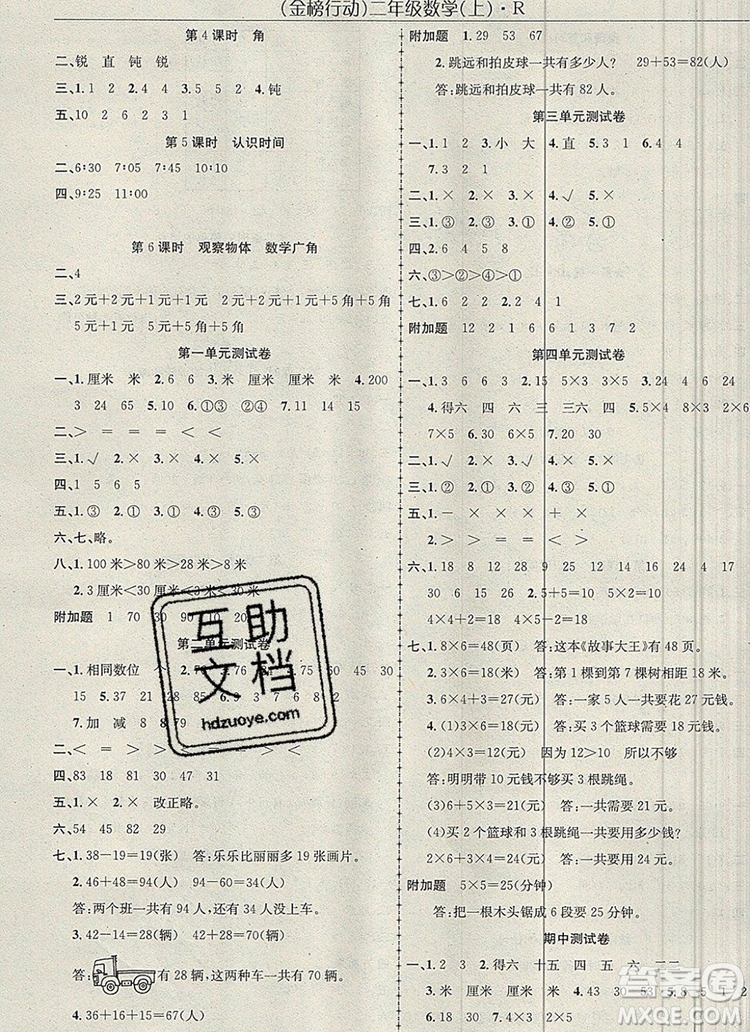 (金榜行动)二年级数学(上)·R
第4课时 角
二、锐 直 钝 锐
三、1.1 2 2.4 3.2 4.2 5.钝
五、10 2 6 2 3 1
第5课时 认识时间
二、6:30 7:05 7:45 10:20
四、9:25 11:00
第6课时 观察物体 数学广角
二、4
三、2元+2元+1元 2元+2元+5角+5角
2元+1元 5元 5元+5角+5角
第一单元测试卷
一、1.厘米 米 2.6 6 3.米 厘米 米 4.200
3 24 65 5.10 6.①③ ②④ 7.11 14 15
二、> = = = < <
三、1.√ 2.× 3.× 4.× 5.×
四、1 5 6 5
五、1.③ 2.② 3.① 4.① 5.①
六、七、略。
八、1.100米>80米>28米>8米
2.3厘米<30厘米<3米<30米
附加题 1 70 30 90 10 20
第二单元测试卷
一、1.相同数位 个 45 30
15 5.37 6.
7.+ 加 减 8.8
二、< > = > < >
四、83 18 81 30 47 31
五、1.× 2.× 改正略。
六、54 45 82 29
七、1.38-19=19(张) 答:乐乐比丽丽多19张画片。
2.46+48=94(人) 94-94=0(人)
答:两个班一共有94人,还有0人没有座位。
3.42-14=28(辆) 42+28=70(辆)
答:有28辆,这两种车一共有70辆。
4.36+16-10=42(人)
附加题 1.29 53 67
2.跳远和拍皮球一共有多少人? 29+53=82(人)
答:跳远和拍皮球一共有82人。
第三单元测试卷
一、1.1 2 2.9 3.小 大 4.直 5.3 1 6.4 4
7.3 2 1
二、1.× 2.× 3.× 4.√ 5.×
三、1.③ 2.② 3.② 4.① 5.③
四、2.6 4 5 8
六、③>②>④>①
七、1.6 2.1 6 1 2
附加题 12 2 1 6 6 1 3 7 2
第四单元测试卷
一、1.3 6 6 3 2.15 5×3 3×5 3.24 24
4.得六 四 四 六 三三得九 5.4 5×4 8×3
7×5 6.30 5×6 7.20 30
二、1.√ 2.× 3.× 4.× 5.×
四、1.② 2.① 3.② 4.② 5.③
五、1.- × × × + ×
2.> > > > = >
六、1.18 28 18 15 12 24 9 4 17
30 6 15 30 2.4×5=20 5×4=20
4×4+2=18 4×5-2=18
七、1.6×8=48(页) 答:这本《故事大王》有48页。
2.3×6=18(米) 答:第1棵到第7棵树相距18米。
3.4×6+3=27(元) 答:一家5人一共要花27元钱。
4.(1)6×3=18(元) 答:买3个篮球要18元钱。
(2)4×3=12(元) 12>10 所以不够
答:明明带10元钱不够买3个跳绳。
(3)6+5×3=21(元) 答:一共需要21元。
(4)买2个篮球和3根跳绳一共要用多少钱?
2×6+3×4=24(元) 答:一共需要24元。
附加题 5×5=25(分钟)
答:把一根木头锯成6段要25分钟。
期中测试卷
互助
文档
hdzuoye.com
答案圈
MXQE.COM